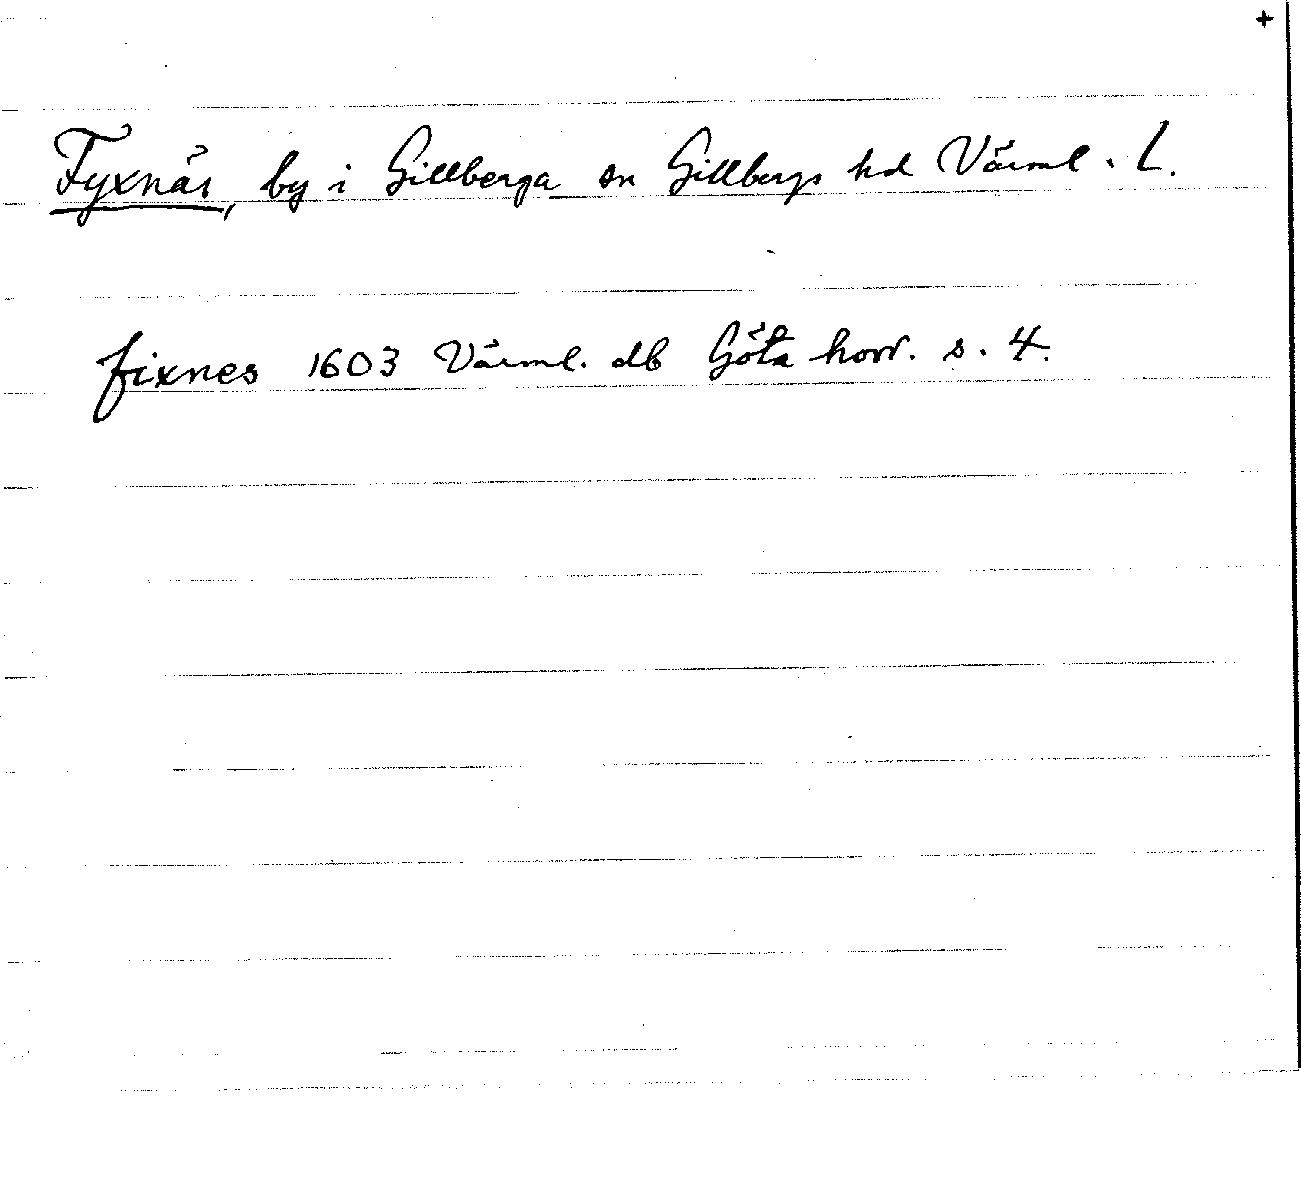 +
Fyxnäs, by i Gillberga sn Gillbergs hd Värml. L.
fixnes 1603 Värml. db Göta hovr. s. 4.